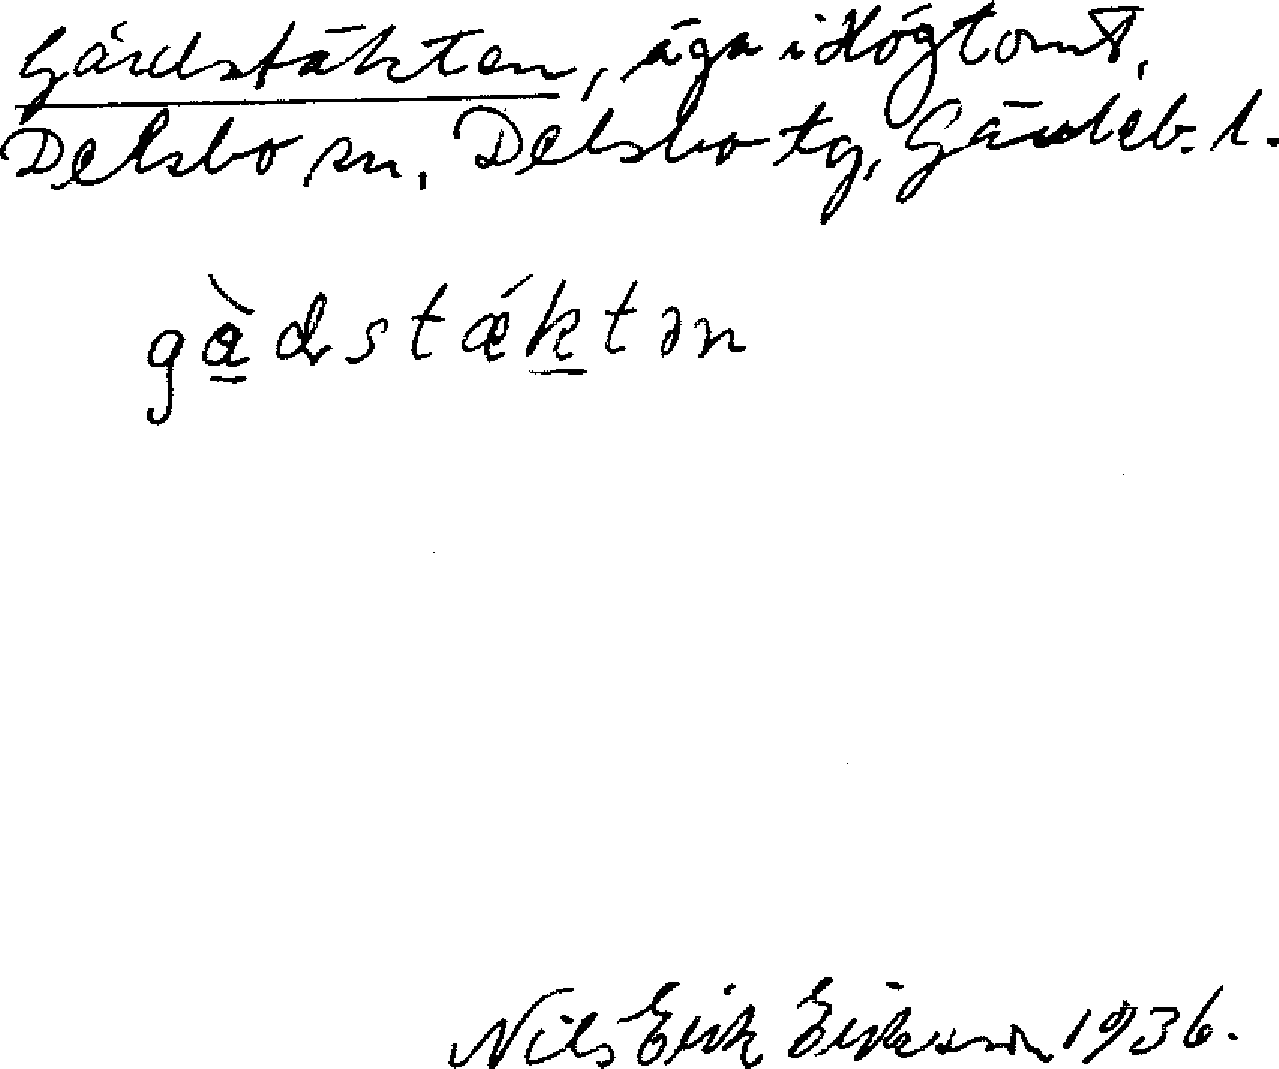 Gårdstäkten, äga i Högtomt,
Delsbo sn, Delsbo tg, Gävleb. l.
gàdstǽktən
Nils Erik Eriksson 1936.